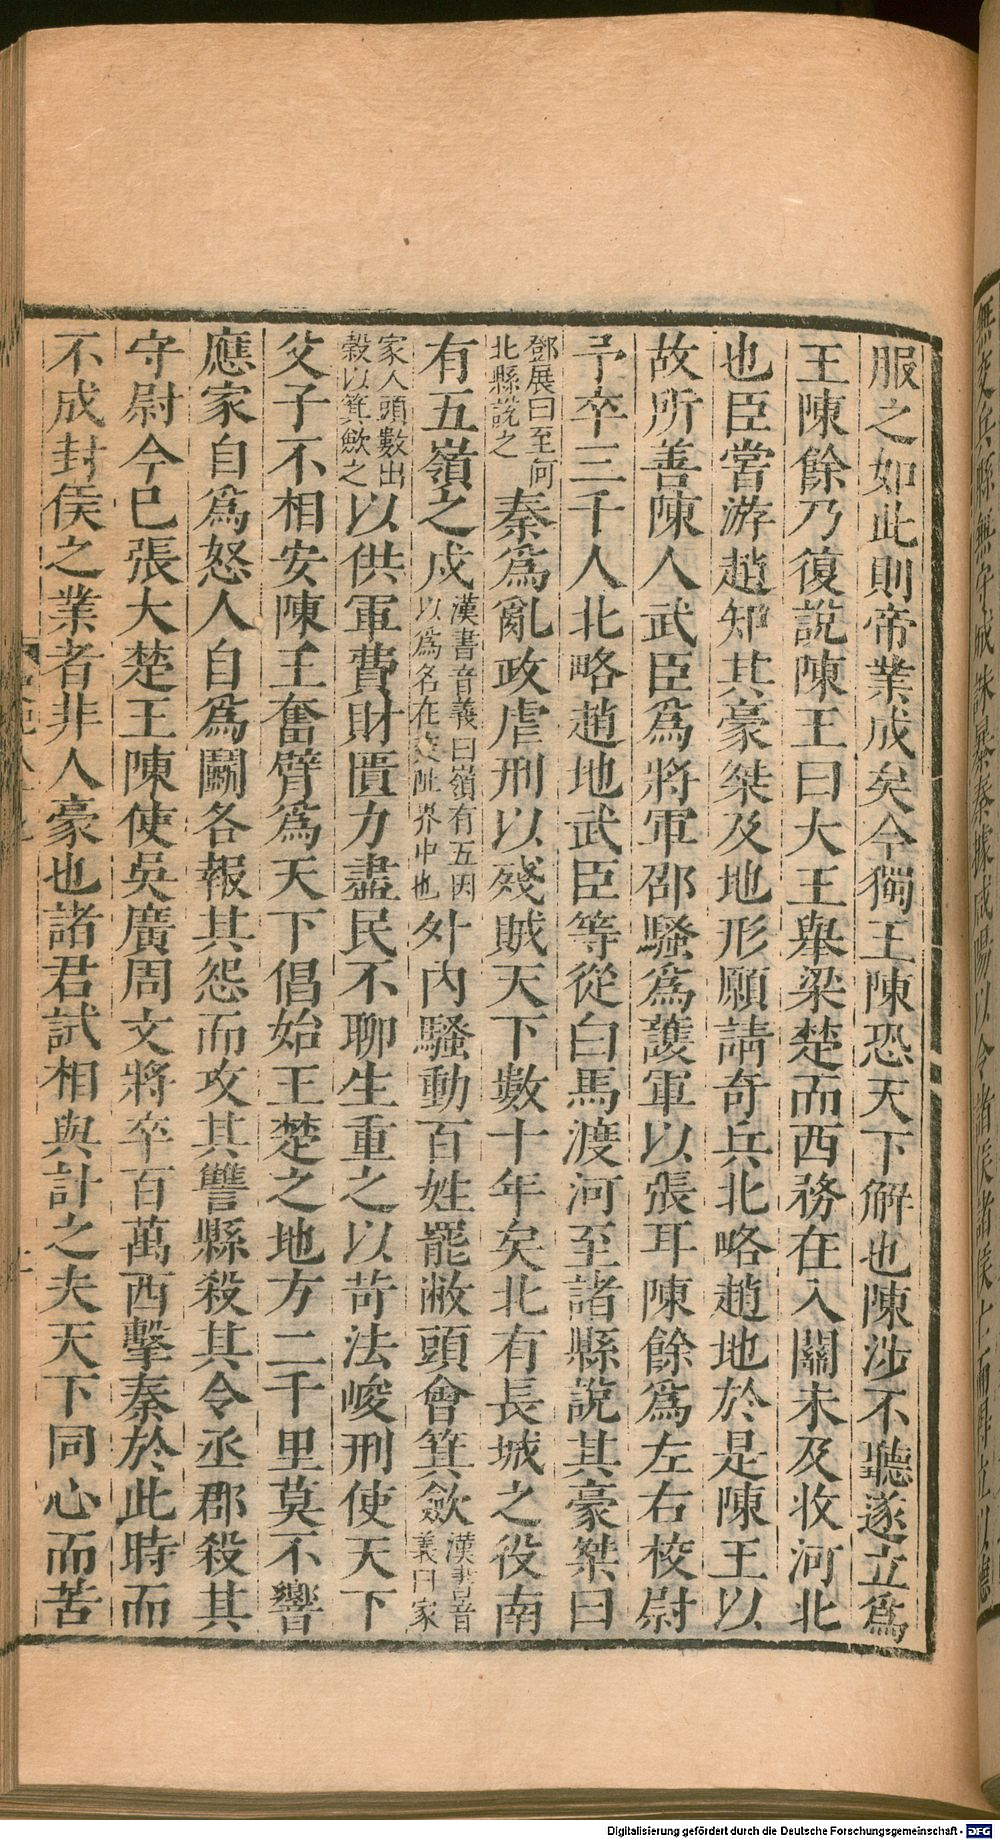 服之如此則帝業成矣今獨王陳恐天下解也陳涉不聽遂立爲
王陳餘乃復說陳王曰大王舉梁楚而西務在入關未及收河北
也臣嘗游趙知其豪桀及地形願請奇兵北略趙地於是陳王以
故所善陳人武臣爲將軍邵騷爲護軍以張耳陳餘爲左右校尉
予卒三千人北略趙地武臣等從白馬渡河至諸縣說其豪桀曰
鄧展曰至河北縣說之秦爲亂政虐刑以殘賊天下數十年矣北有長城之役南
有五嶺之戍漢書音義曰嶺有五因以爲名在交阯界中也外內騷動百姓罷敝頭會箕歛漢書音義曰家
家人頭數出穀以箕歛之以供軍費財匱力盡民不聊生重之以苛法峻刑使天下
父子不相安陳王奮臂爲天下倡始王楚之地方二千里莫不響
應家自爲怒人自爲鬭各報其怨而攻其讐縣殺其令丞郡殺其
守尉今已張大楚王陳使吳廣周文將卒百萬西擊秦於此時而
不成封侯之業者非人豪也諸君試相與計之夫天下同心而苦
Digitalisierung gefördert durch die Deutsche Forschungsgemeinschaft - DFG